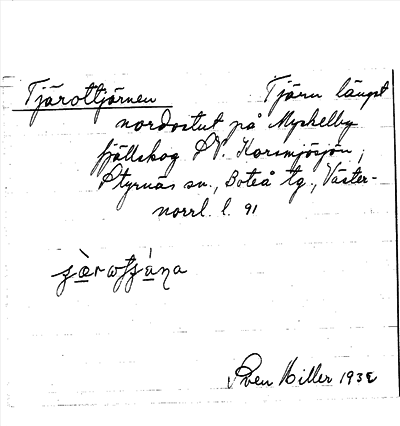 Tjärottjärnen Tjärn längst
nordostut på Myckelby
fjällskog SV. Korsmjösjön,
Styrnäs sn., Boteå tg., Väster-
norrl. l. 91
Sven Hiller 1932